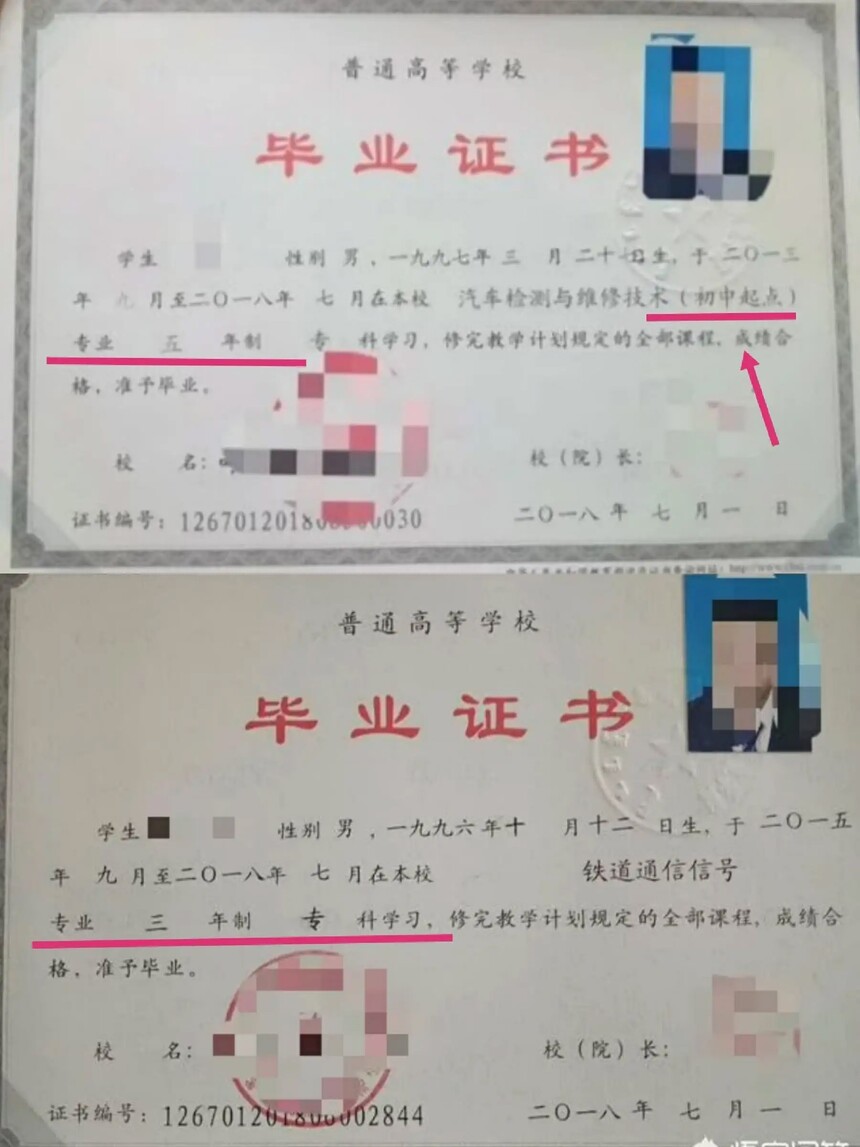 普通高等学校
毕业证书
学生 性别 男，一九九七年 三 月 二十七日生，于 二〇一三
年 九 月至二〇一八年 七 月在本校 汽车检测与维修技术（初中起点）
专业 五 年制 专 科学习，修完教学计划规定的全部课程，成绩合
格，准予毕业。
校 名： 校（院）长：
证书编号：126701201806 0030 二〇一八年 七 月 一 日
普通高等学校
毕业证书
学生 性别 男，一九九六年 十 月 十二 日生，于 二〇一五
年 九 月至二〇一八年 七 月在本校 铁道通信信号
专业 三 年制 专 科学习，修完教学计划规定的全部课程，成绩合
格，准予毕业。
校 名： 校（院）长：
证书编号：126701201806002844 二〇一八年 七 月 一 日